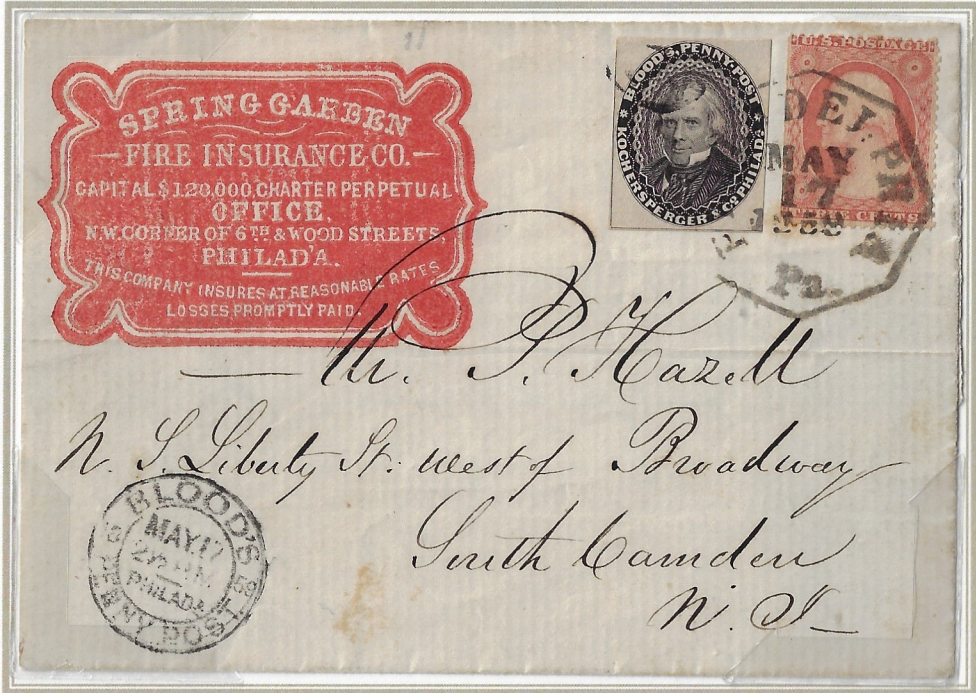 SPRING GARDEN
FIRE INSURANCE CO.
CAPITAL $120,000 CHARTER PERPETUAL
OFFICE,
N.W. CORNER OF 6TH & WOOD STREETS,
PHILAD'A.
THIS COMPANY INSURES AT REASONABLE RATES
LOSSES PROMPTLY PAID.
BLOOD'S, PENNY-POST
KOCHERSPERGER & CO PHILADA
U.S. POSTAGE
THREE CENTS
MAY
17
Pa.
P. Hazell
N. S. Liberty St. west of Broadway
South Camden
N. J
BLOOD'S
MAY 17
PHILADA
PENNY POST